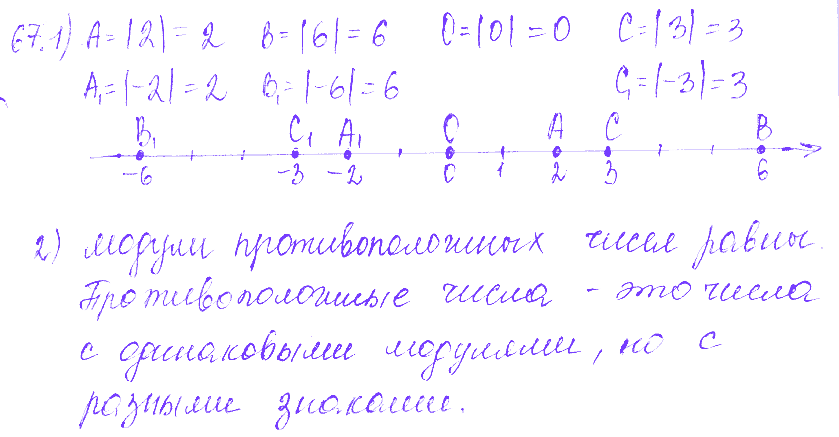 67.1) A=|2|=2 B=|6|=6 O=|0|=0 C=|3|=3
A₁=|-2|=2 B₁=|-6|=6 C₁=|-3|=3
B₁ C₁ A₁ O A C B
-6 -3 -2 0 1 2 3 6
2) модули противоположных чисел равны.
Противоположные числа - это числа
с одинаковыми модулями, но с
разными знаками.